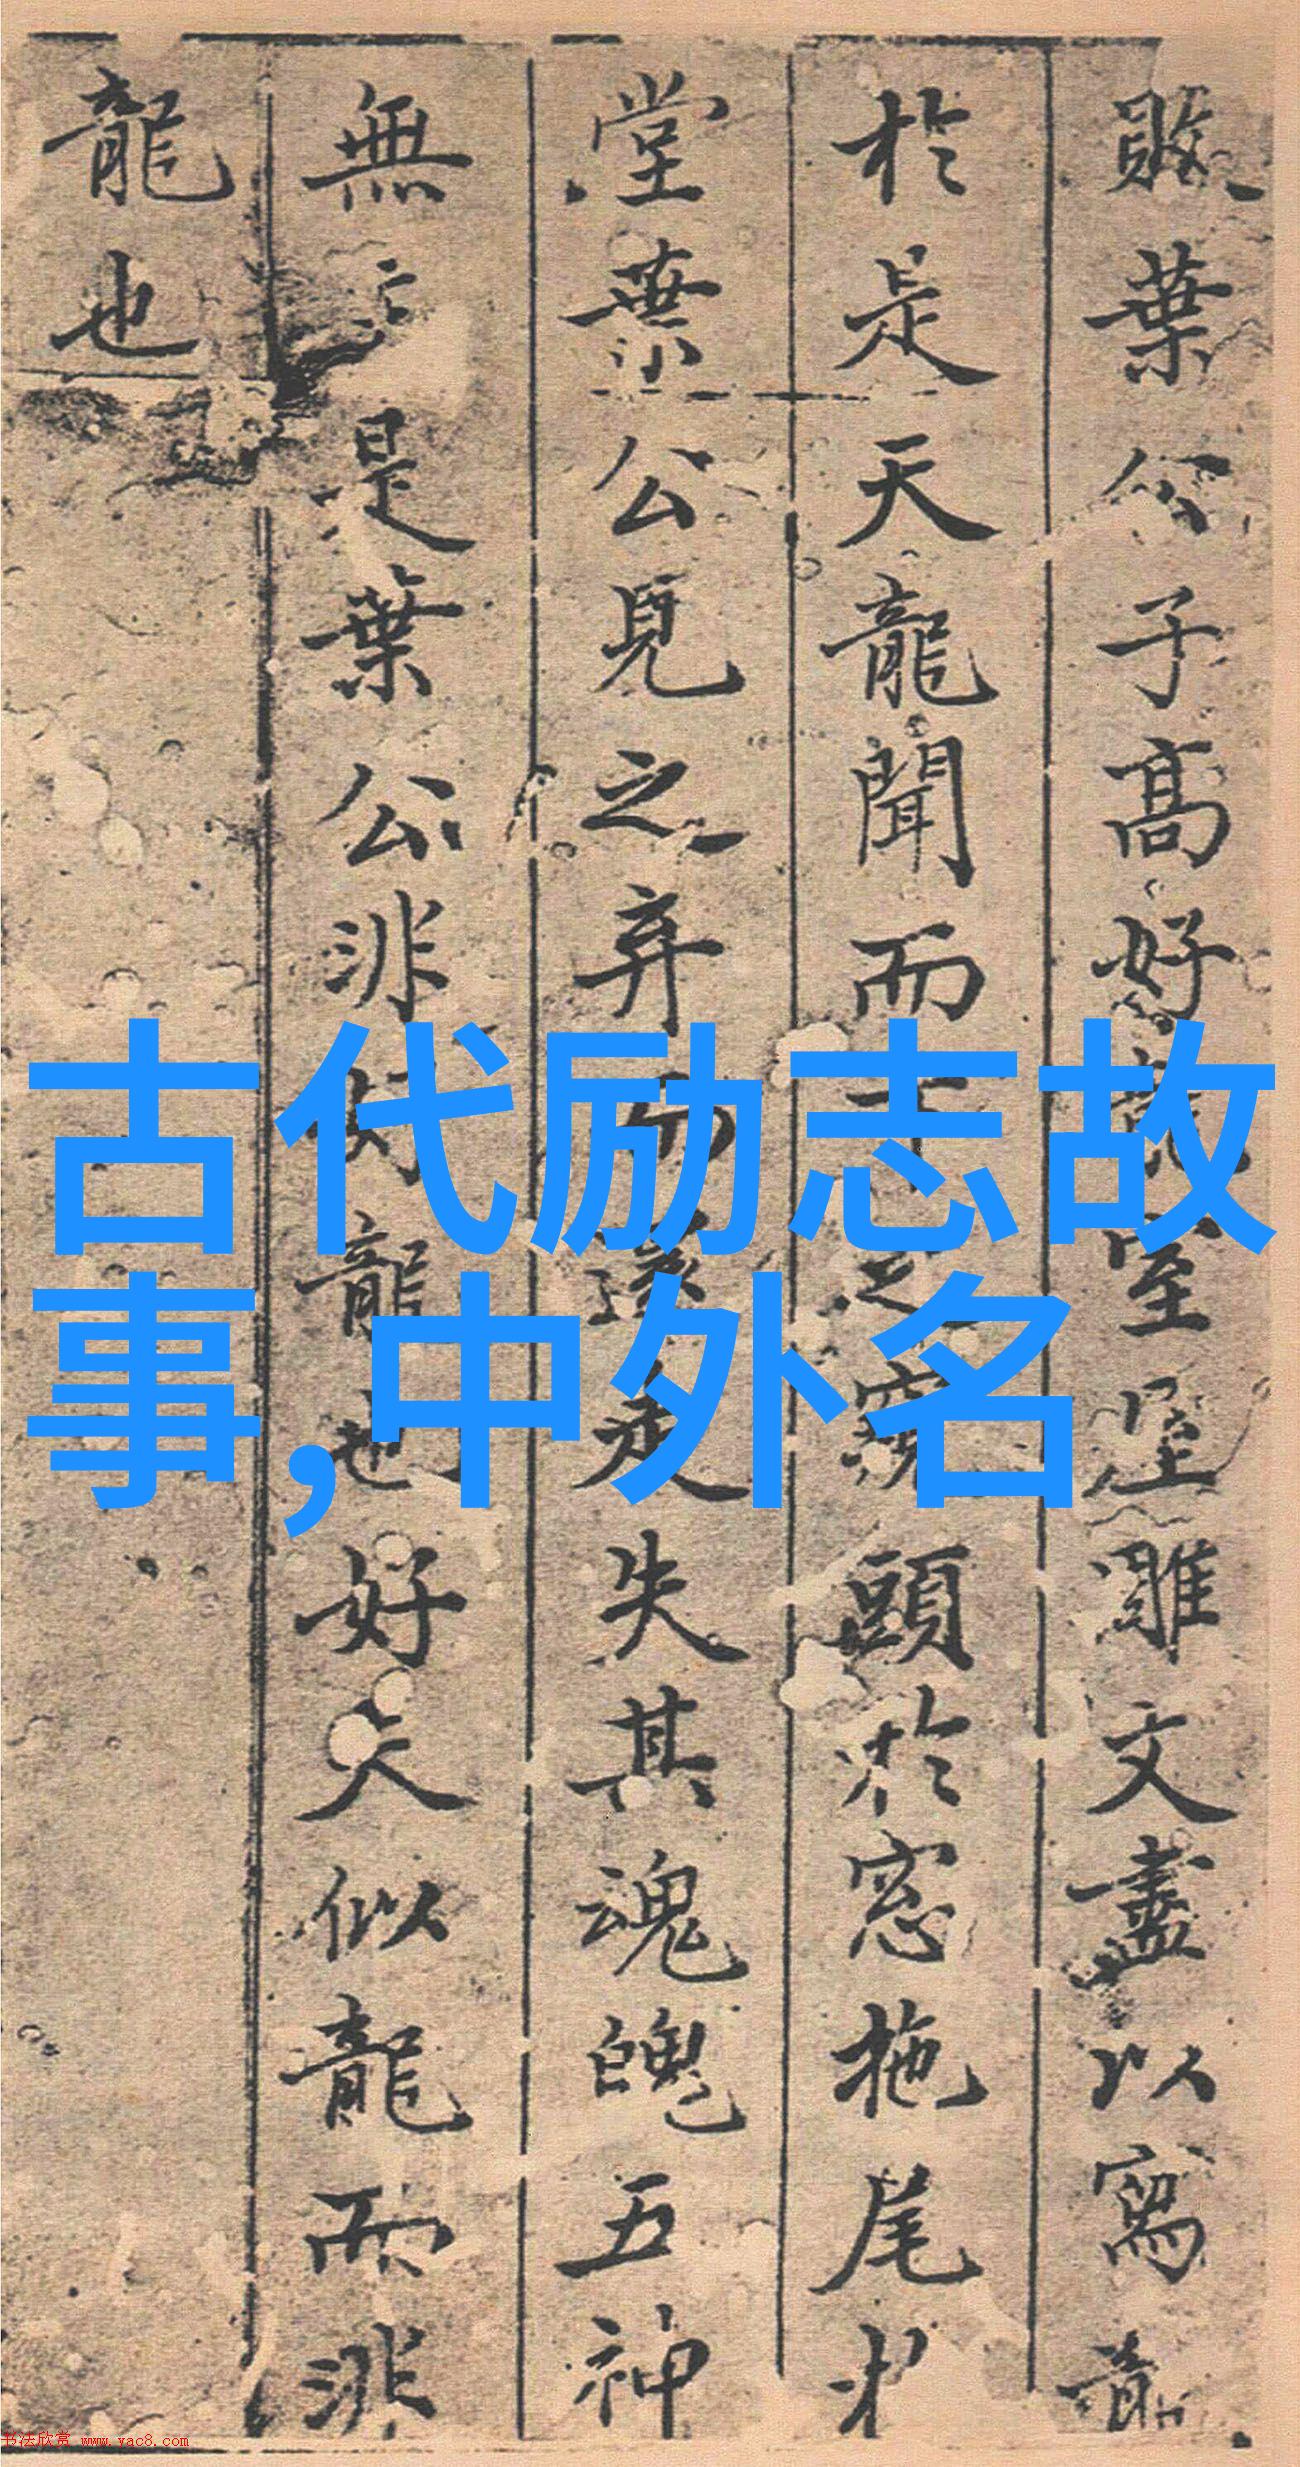 敗葉公子高好龍室屋雕文盡以寫龍
於是天龍聞而下之窺頭於窓拖尾於
堂葉公見之弃而還走失其魂魄五神
無主是葉公非好龍也好夫似龍而非
龍也
古代励志故
事,中外名
书法欣赏 www.yac8.com